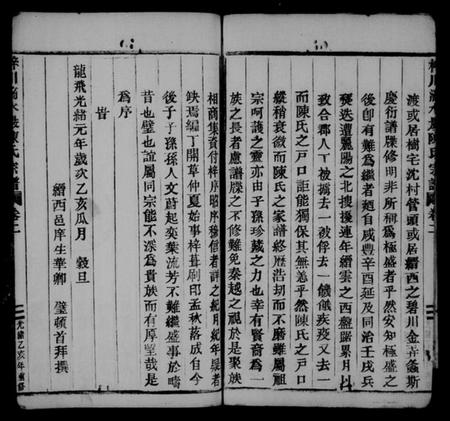 渡或居樹宅沈村管頭或居縉西之碧川金弄螽斯
慶衍譜牒修明非所稱為極盛者乎然安知極盛之
後卽有難為繼者廹自咸豐辛酉延及同治壬戌兵
燹迭遭麗陽之北搜擾連年縉雲之西盤踞累月
致合郡人丁被擄去一被俘去一饑僅疾疫又去一
而陳氏之戶口詎能獨保其無恙乎然陳氏之戶口
縱稍衰微而陳氏之家譜終歷刧而不磨雖屬祖
宗呵護之靈亦由子孫珍藏之力也幸有賢裔為一
族之長者慮譜牒之不修難免秦越之視於是聚族
相商集資付梓序昭序穆信者詳之紀月紀年疑者
缺焉編丁開草仲夏始事梓葺刷印孟秋落成自今
後子子孫孫人文蔚起奕葉流芳不難繼盛事於疇
昔也璧也誼屬同宗能不深為貴族而有厚望哉是
為序
旹
龍飛光緒元年歲次乙亥瓜月 穀旦
縉西邑庠生華卿 璧頓首拜撰
陳氏宗譜 卷二
光緒乙亥年重修